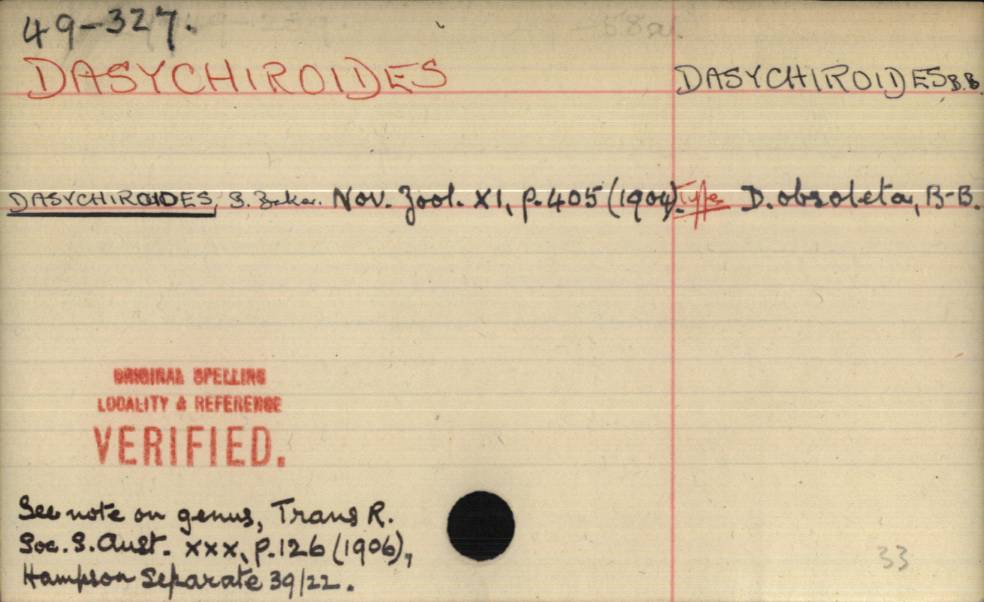 49-327.
DASYCHIROIDES
DASYCHIROIDES B.B.
DASYCHIROIDES, B. Baker. Nov. Zool. XI, p. 405 (1904). Type D. obsoleta, B-B.
ORIGINAL SPELLING
LOCALITY & REFERENCE
VERIFIED.
See note on genus, Trans R.
Soc. S. Aust. XXX, p. 126 (1906),
Hampson Separate 39/22.
33